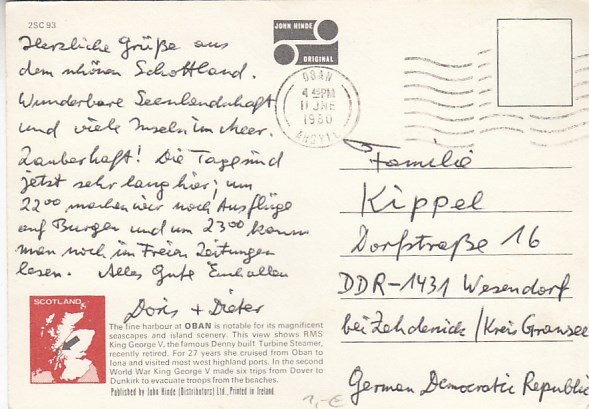 2SC 93
Herzliche Grüße aus
dem schönen Schottland.
Wunderbare Seenlandschaft
und viele Inseln im Meer.
Zauberhaft! Die Tage sind
jetzt sehr lang hier; um
22⁰⁰ machen wir noch Ausflüge
auf Burgen und um 23⁰⁰ kann
man noch im Freien Zeitungen
lesen. Alles Gute Euch allen
Doris + Dieter
JOHN HINDE
ORIGINAL
OBAN
4 45PM
11 JNE
1980
ARGYLL
Familie
Kippel
Dorfstraße 16
DDR-1431 Wesendorf
bei Zehdenick/Kreis Gransee
German Democratic Republic
SCOTLAND
The fine harbour at OBAN is notable for its magnificent
seascapes and island scenery. This view shows RMS
King George V, the famous Denny built Turbine Steamer,
recently retired. For 27 years she cruised from Oban to
Iona and visited most west highland ports. In the second
World War King George V made six trips from Dover to
Dunkirk to evacuate troops from the beaches.
Published by John Hinde (Distributors) Ltd., Printed in Ireland.
1,-€